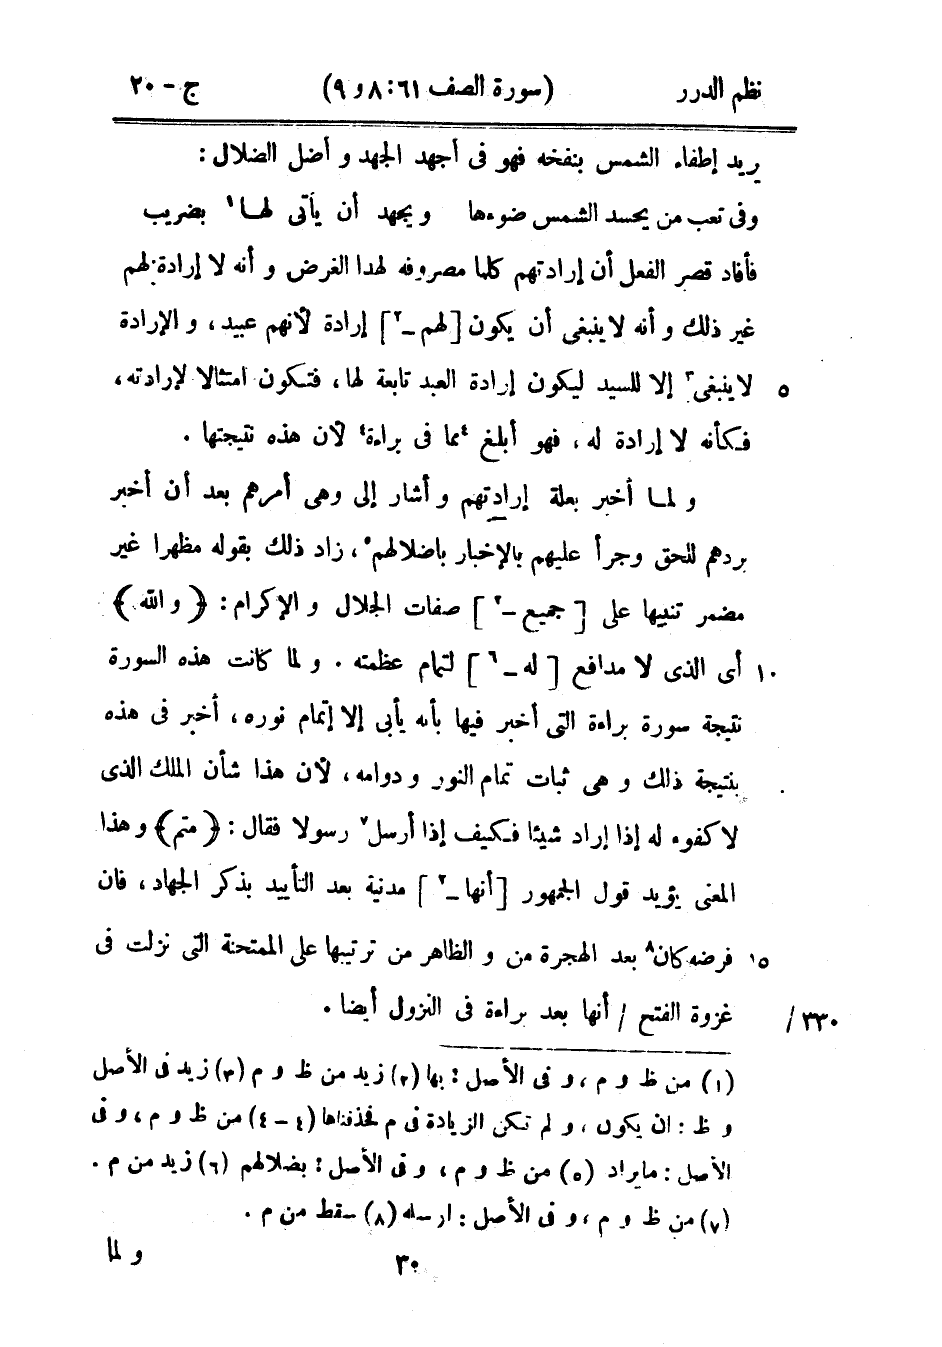 نظم الدرر (سورة الصف ٦١: ٨ و ٩) ج - ٢٠
يريد إطفاء الشمس بنفخه فهو فى أجهد الجهد و أضل الضلال :
وفى تعب من يحسد الشمس ضوءها ويجهد أن يأتى لها١ بضريب
فأفاد قصر الفعل أن إرادتهم كلها مصروفه لهذا الغرض و أنه لا إرادة لهم
غير ذلك و أنه لا ينبغى أن يكون [ لهم ـ٢ ] إرادة لأنهم عبيد، و الإرادة
٥ لا ينبغى٣ إلا للسيد ليكون إرادة العبد تابعة لها، فتكون امتثالا لإرادته،
فكأنه لا إرادة له، فهو أبلغ ٤مما فى براءة٤ لأن هذه نتيجتها .
و لما أخبر بعلة إرادتهم و أشار إلى وهى أمرهم بعد أن أخبر
بردهم للحق وجرأ عليهم بالإخبار باضلالهم٥، زاد ذلك بقوله مظهرا غير
مضمر تنبيها على [ جميع ـ٢ ] صفات الجلال و الإكرام : ﴿ و الله ﴾
١٠ أى الذى لا مدافع [ له ـ٦ ] لتمام عظمته . و لما كانت هذه السورة
نتيجة سورة براءة التى أخبر فيها بأنه يأبى إلا إتمام نوره، أخبر فى هذه
بنتيجة ذلك و هى ثبات تمام النور و دوامه، لأن هذا شأن الملك الذى
لا كفوء له إذا إراد شيئا فكيف إذا أرسل٧ رسولا فقال : ﴿ متم ﴾ و هذا
المعنى يؤيد قول الجمهور [ أنها ـ٢ ] مدنية بعد التأييد بذكر الجهاد، فان
١٥ فرضه كان٨ بعد الهجرة من و الظاهر من ترتيبها على الممتحنة التى نزلت فى
غزوة الفتح / أنها بعد براءة فى النزول أيضا . ٣٣٠ /
(١) من ظ و م، و فى الأصل : بها (٢) زيد من ظ و م (٣) زيد فى الأصل
و ظ : ان يكون، و لم تكن الزيادة فى م فحذفناها (٤ - ٤) من ظ و م، و فى
الأصل : مايراد (٥) من ظ و م، و فى الأصل : بضلالهم (٦) زيد من م .
(٧) من ظ و م، و فى الأصل : ارسله (٨) سقط من م .
٣٠ و لما